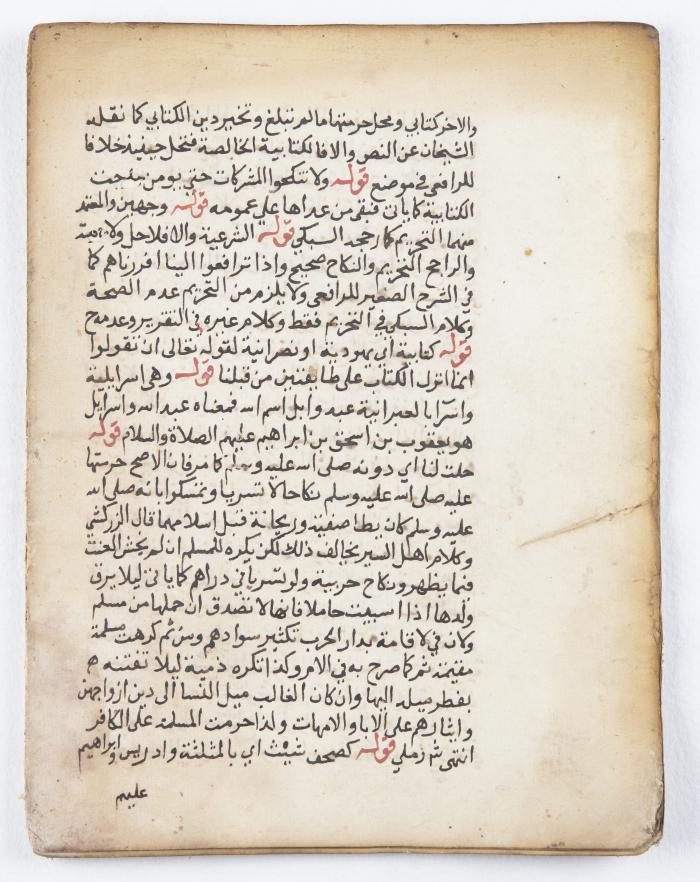 والاخر كتابي ومحل حرمتها ما لم تبلغ وتختر دين الكتابي كما نقله
الشيخان عن النص والا فالكتابية الخالصة فتحل حينئذ خلافا
للرافعي في موضع قوله ولا تنكحوا المشركات حتى يومن خرجت
الكتابية كما يات فبقي من عداها علي عمومه قوله وجهين والمعتمد
منهما التحريم كما رجحه السبكي قوله الشرعية والا فلا حل ولا
والراجح التحريم والنكاح صحيح واذا ترافعوا الينا اقررناهم كما
في الشرح الصغير للرافعي ولا يلزم من التحريم عدم الصحة
وكلام السبكي في التحريم فقط وكلام غيره في التقرير وعدمه ح
قوله كتابية اي يهودية او نصرانية لقوله تعالى ان تقولوا
انما انزل الكتاب على طايفتين من قبلنا قوله وهي اسرايلية
واسرا بالعبرانية عبد وايل اسم الله فمعناه عبد الله واسرايل
هو يعقوب بن اسحق بن ابراهيم عليهم الصلاة والسلام قوله
حلت لنا اي دونه صلى الله عليه وسلم كما مر فان الاصح حرمتها
عليه صلى الله عليه وسلم نكاحا لا تسريا وتمسكوا بانه صلى الله
عليه وسلم كان يطا صفية وريحانة قبل اسلامهما قال الزركشي
وكلام اهل السير يخالف ذلك لكن يكره للمسلم ان لم يخش العنت
فيما يظهر ونكاح حربية ولو تسريا في دراهم كما ياتي ليلا يرق
ولدها اذا سبيت حاملا فانها لا تصدق ان حملها من مسلم
ولان في لاقامة بدار الحرب تكثير سوادهم ومن ثم كرهت مسلمة
مقيمة ثم كما صرح به في الام وكذا تكره ذمية ليلا تفتنه
بفطر ميله اليها وان كان الغالب ميل النسا الى دين ازواجهن
وايثارهم علي الابا والامهات ولذا حرمت المسلمة على الكافر
انتهى شر رملي قوله كصحف شيث اي بالمثلثة وادريس وابراهيم
عليهم